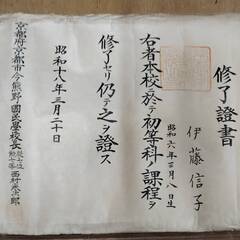 修了證書
伊藤信子
昭和六年三月八日生
右者本校ニ於テ初等科ノ課程ヲ
修了セリ仍テ之ヲ證ス
昭和十八年三月二十日
京都府京都市今熊野國民學校長
西村